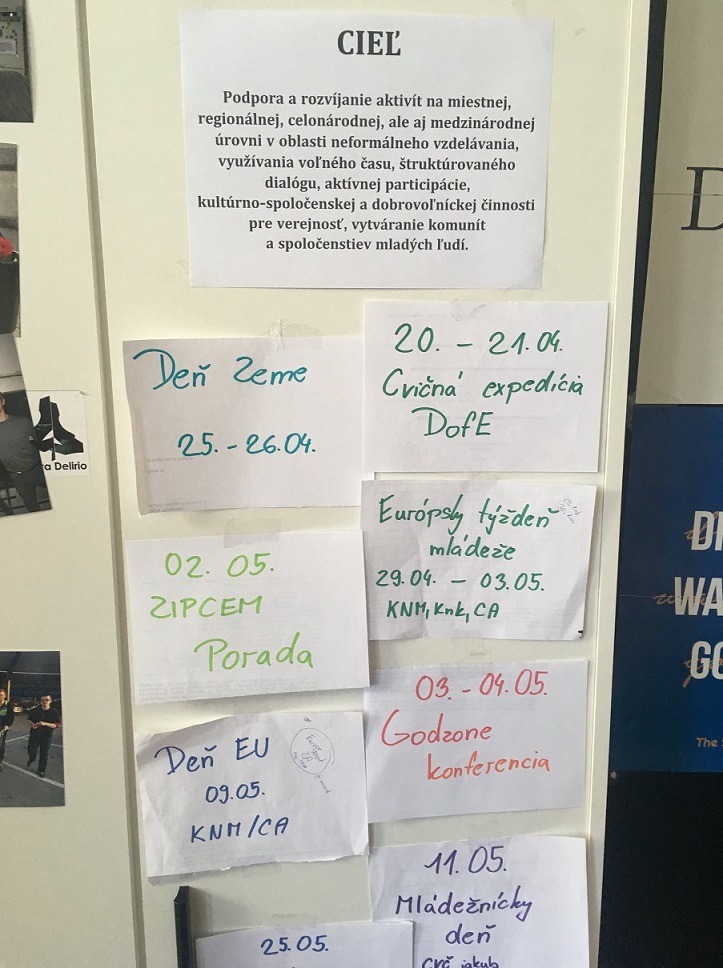 CIEĽ
Podpora a rozvíjanie aktivít na miestnej,
regionálnej, celonárodnej, ale aj medzinárodnej
úrovni v oblasti neformálneho vzdelávania,
využívania voľného času, štruktúrovaného
dialógu, aktívnej participácie,
kultúrno-spoločenskej a dobrovoľníckej činnosti
pre verejnosť, vytváranie komunít
a spoločenstiev mladých ľudí.
20. - 21.04.
Cvičná expedícia
DofE
Deň Zeme
25. - 26.04.
Delirio
Európsky týždeň
mládeže
29.04. - 03.05.
KNM, KnK, CA
02. 05.
ZIPCEM
Porada
03. - 04.05.
Godzone
konferencia
Deň EU
09.05.
KNM/CA
11.05.
Mládežnícky
deň
CVČ jakub
25.05.
D
WA
GO
The